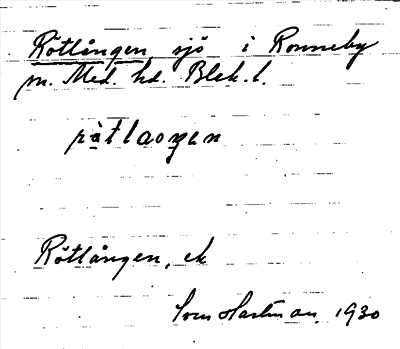 Rötlången sjö i Ronneby
m. Med. hd. Blek. l.
Rötlången, ek
Sven Hartman 1930